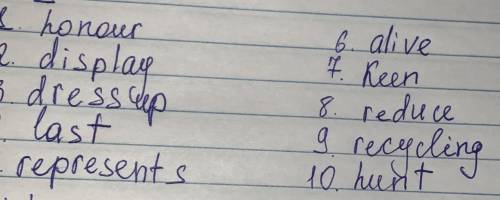 1. honour
2. display
3. dress up
. last
. represents
6. alive
7. Keen
8. reduce
9. recycling
10. hunt